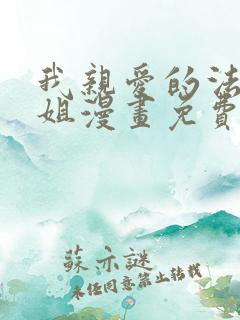 我親愛的法
姐漫畫免費
蘇亦謎
未經同意禁止轉載